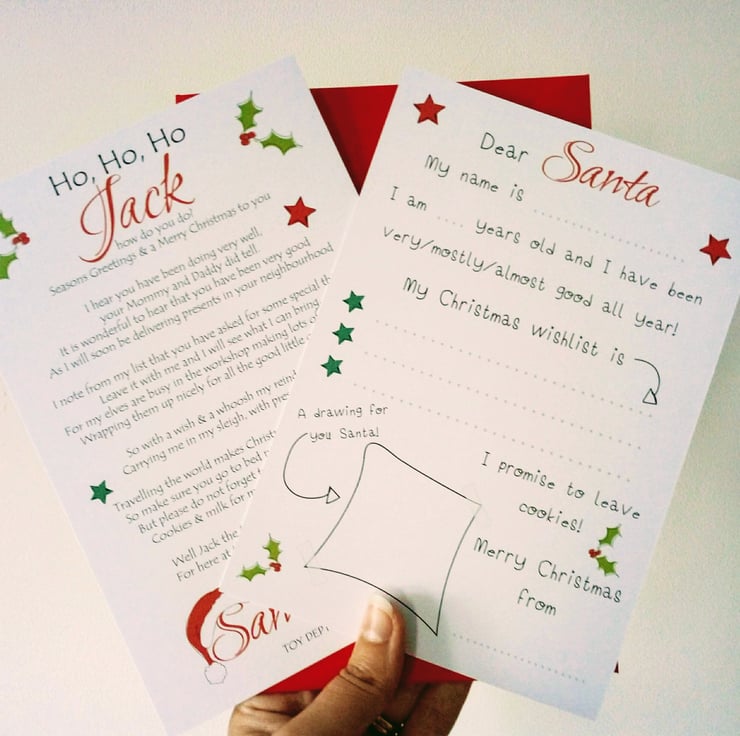 Ho, Ho, Ho
Jack
how do you do!
Seasons Greetings & a Merry Christmas to you
I hear you have been doing very well,
your Mommy and Daddy did tell.
It is wonderful to hear that you have been very good
As I will soon be delivering presents in your neighbourhood
I note from my list that you have asked for some special
Leave it with me and I will see what I can bring
For my elves are busy in the workshop making lots
Wrapping them up nicely for all the good little
So with a wish & a whoosh my
Carrying me in my sleigh, with
Travelling the world makes
So make sure you go to bed
But please do not forget
Cookies & milk for
Well Jack the
For here at
TOY
Dear Santa
My name is
I am .... years old and I have been
very/mostly/almost good all year!
My Christmas wishlist is
A drawing for
you Santa!
I promise to leave
cookies!
Merry Christmas
from